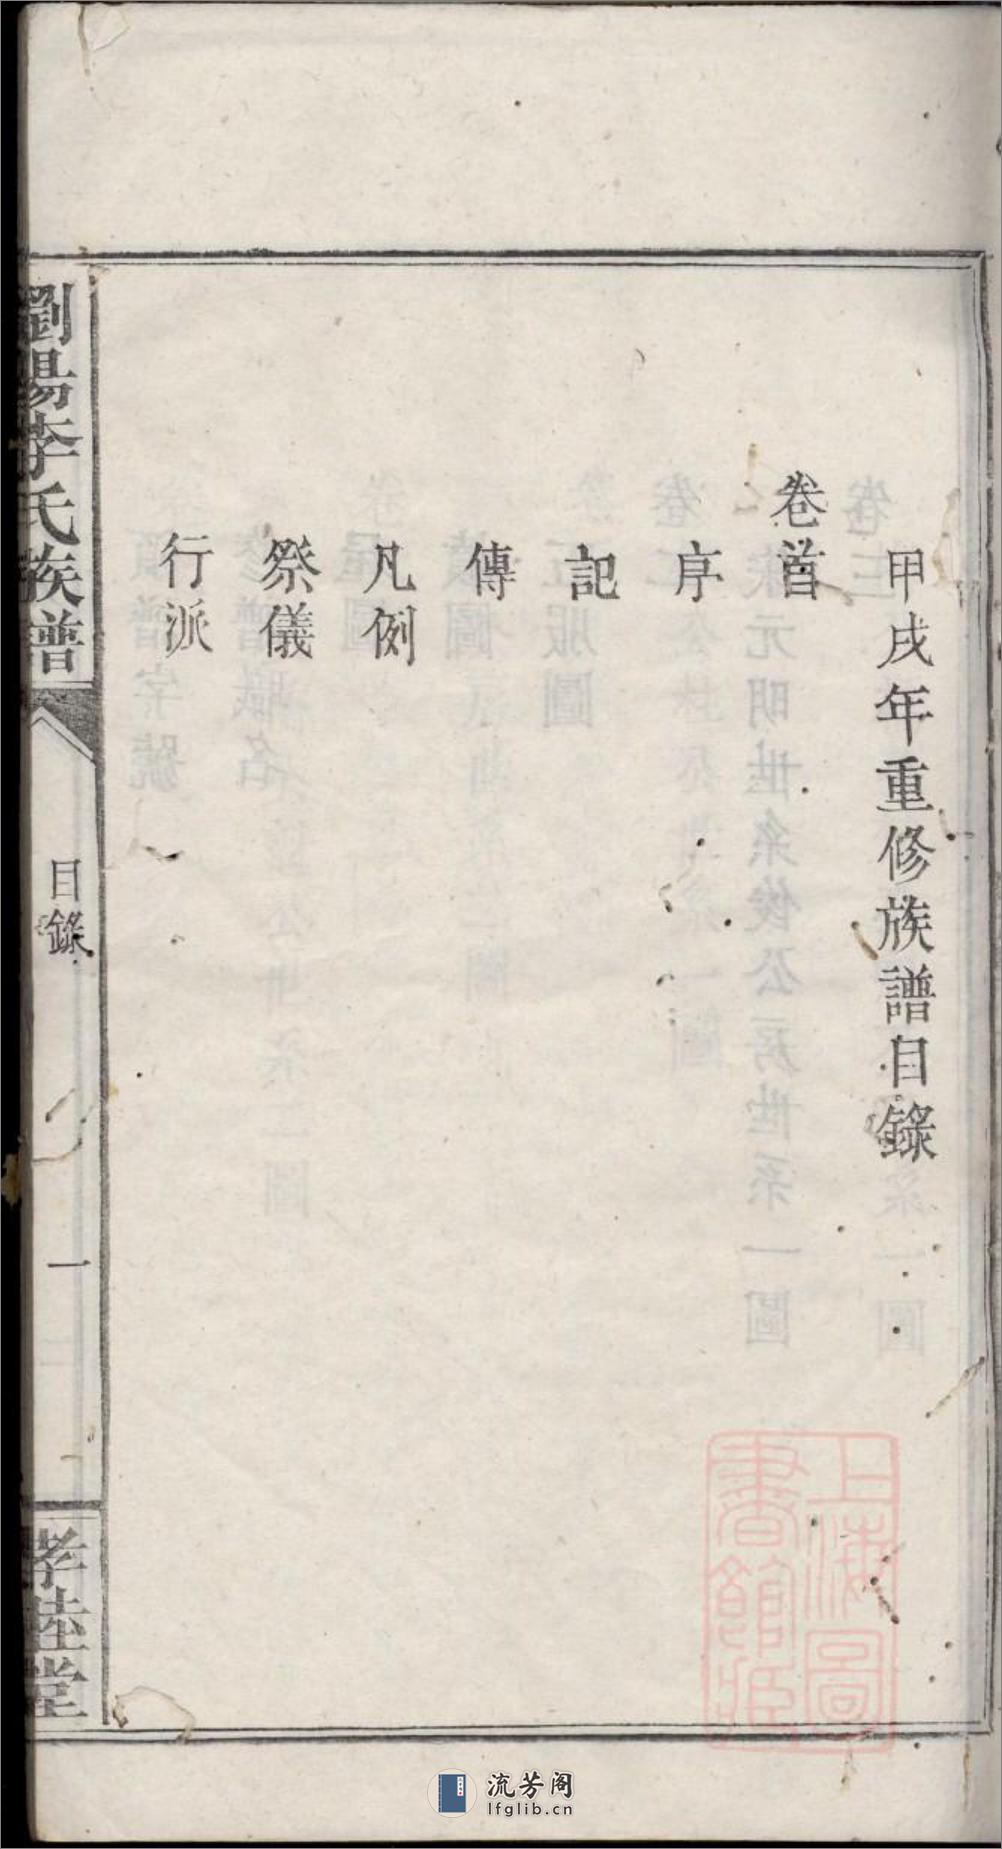 甲戌年重修族譜目錄
卷首
序
記
傳
凡例
祭儀
行派
瀏陽李氏族譜
目錄
一
孝睦堂
上海圖
書館藏
流芳阁
lfglib.cn